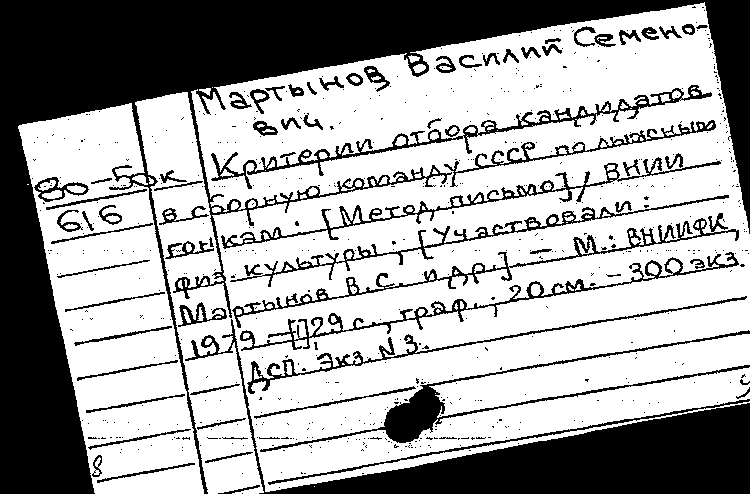 Мартынов Василий Семено-
вич.
80-50к Критерии отбора кандидатов
616 в сборную команду СССР по лыжным
гонкам: [Метод. письмо] / ВНИИ
физ. культуры; [Участвовали:
Мартынов В.С. и др.] - М.: ВНИИФК,
1979. - [1] 29 с., граф.; 20 см. - 300 экз.
Дсп. Экз. N 3.
8